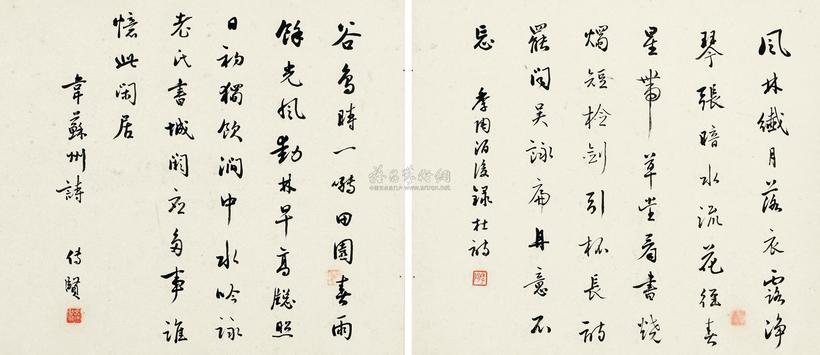 風林纖月落衣露浄
琴張暗水流花徑春
星帶草堂看書燒
燭短檢劍引杯長詩
罷聞吳詠扁舟意不
忘
季陶 後錄杜詩
谷鳥時一囀田園春雨
餘光風動林早高牕照
日初獨飲澗中水吟詠
老氏書城闕應多事誰
憶此閑居
韋蘇州詩 傳賢
雅昌藝術網
www.artron.net